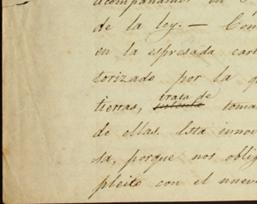 acompañamos en
de la ley. — Com
en la espresada cart
torizado por la q
tierras, trata de toma
de ellas. Esta innov
sa, porque nos oblig
pleito con el nuev